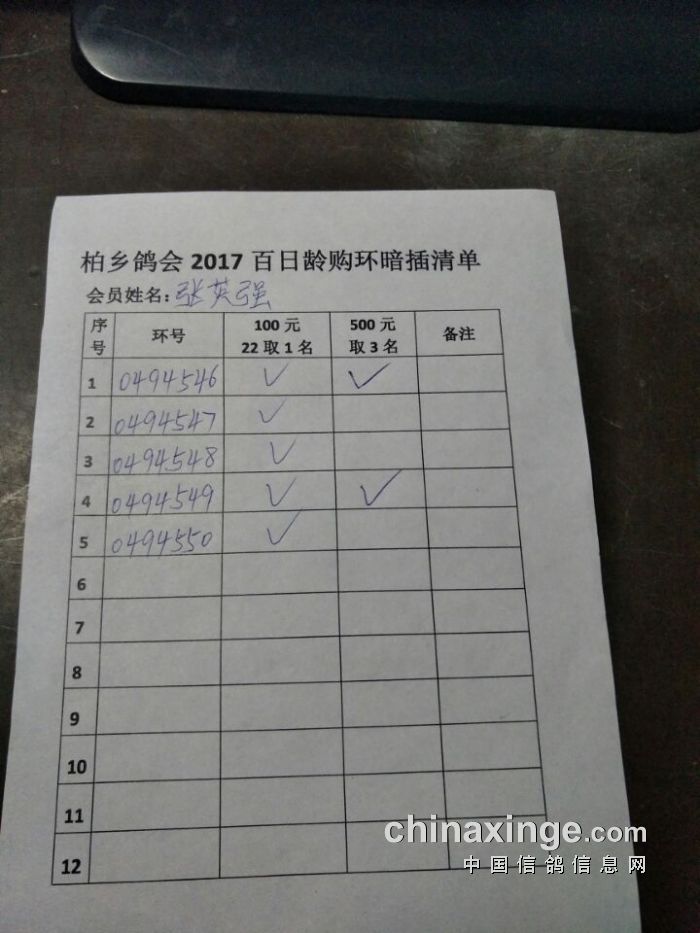 柏乡鸽会 2017 百日龄购环暗插清单
会员姓名：张英强
序号 环号 100 元 22 取 1 名 500 元 取 3 名 备注
1 0494546 ✓ ✓
2 0494547 ✓
3 0494548 ✓
4 0494549 ✓ ✓
5 0494550 ✓
6
7
8
9
10
11
12
chinaxinge.com
中国信鸽信息网